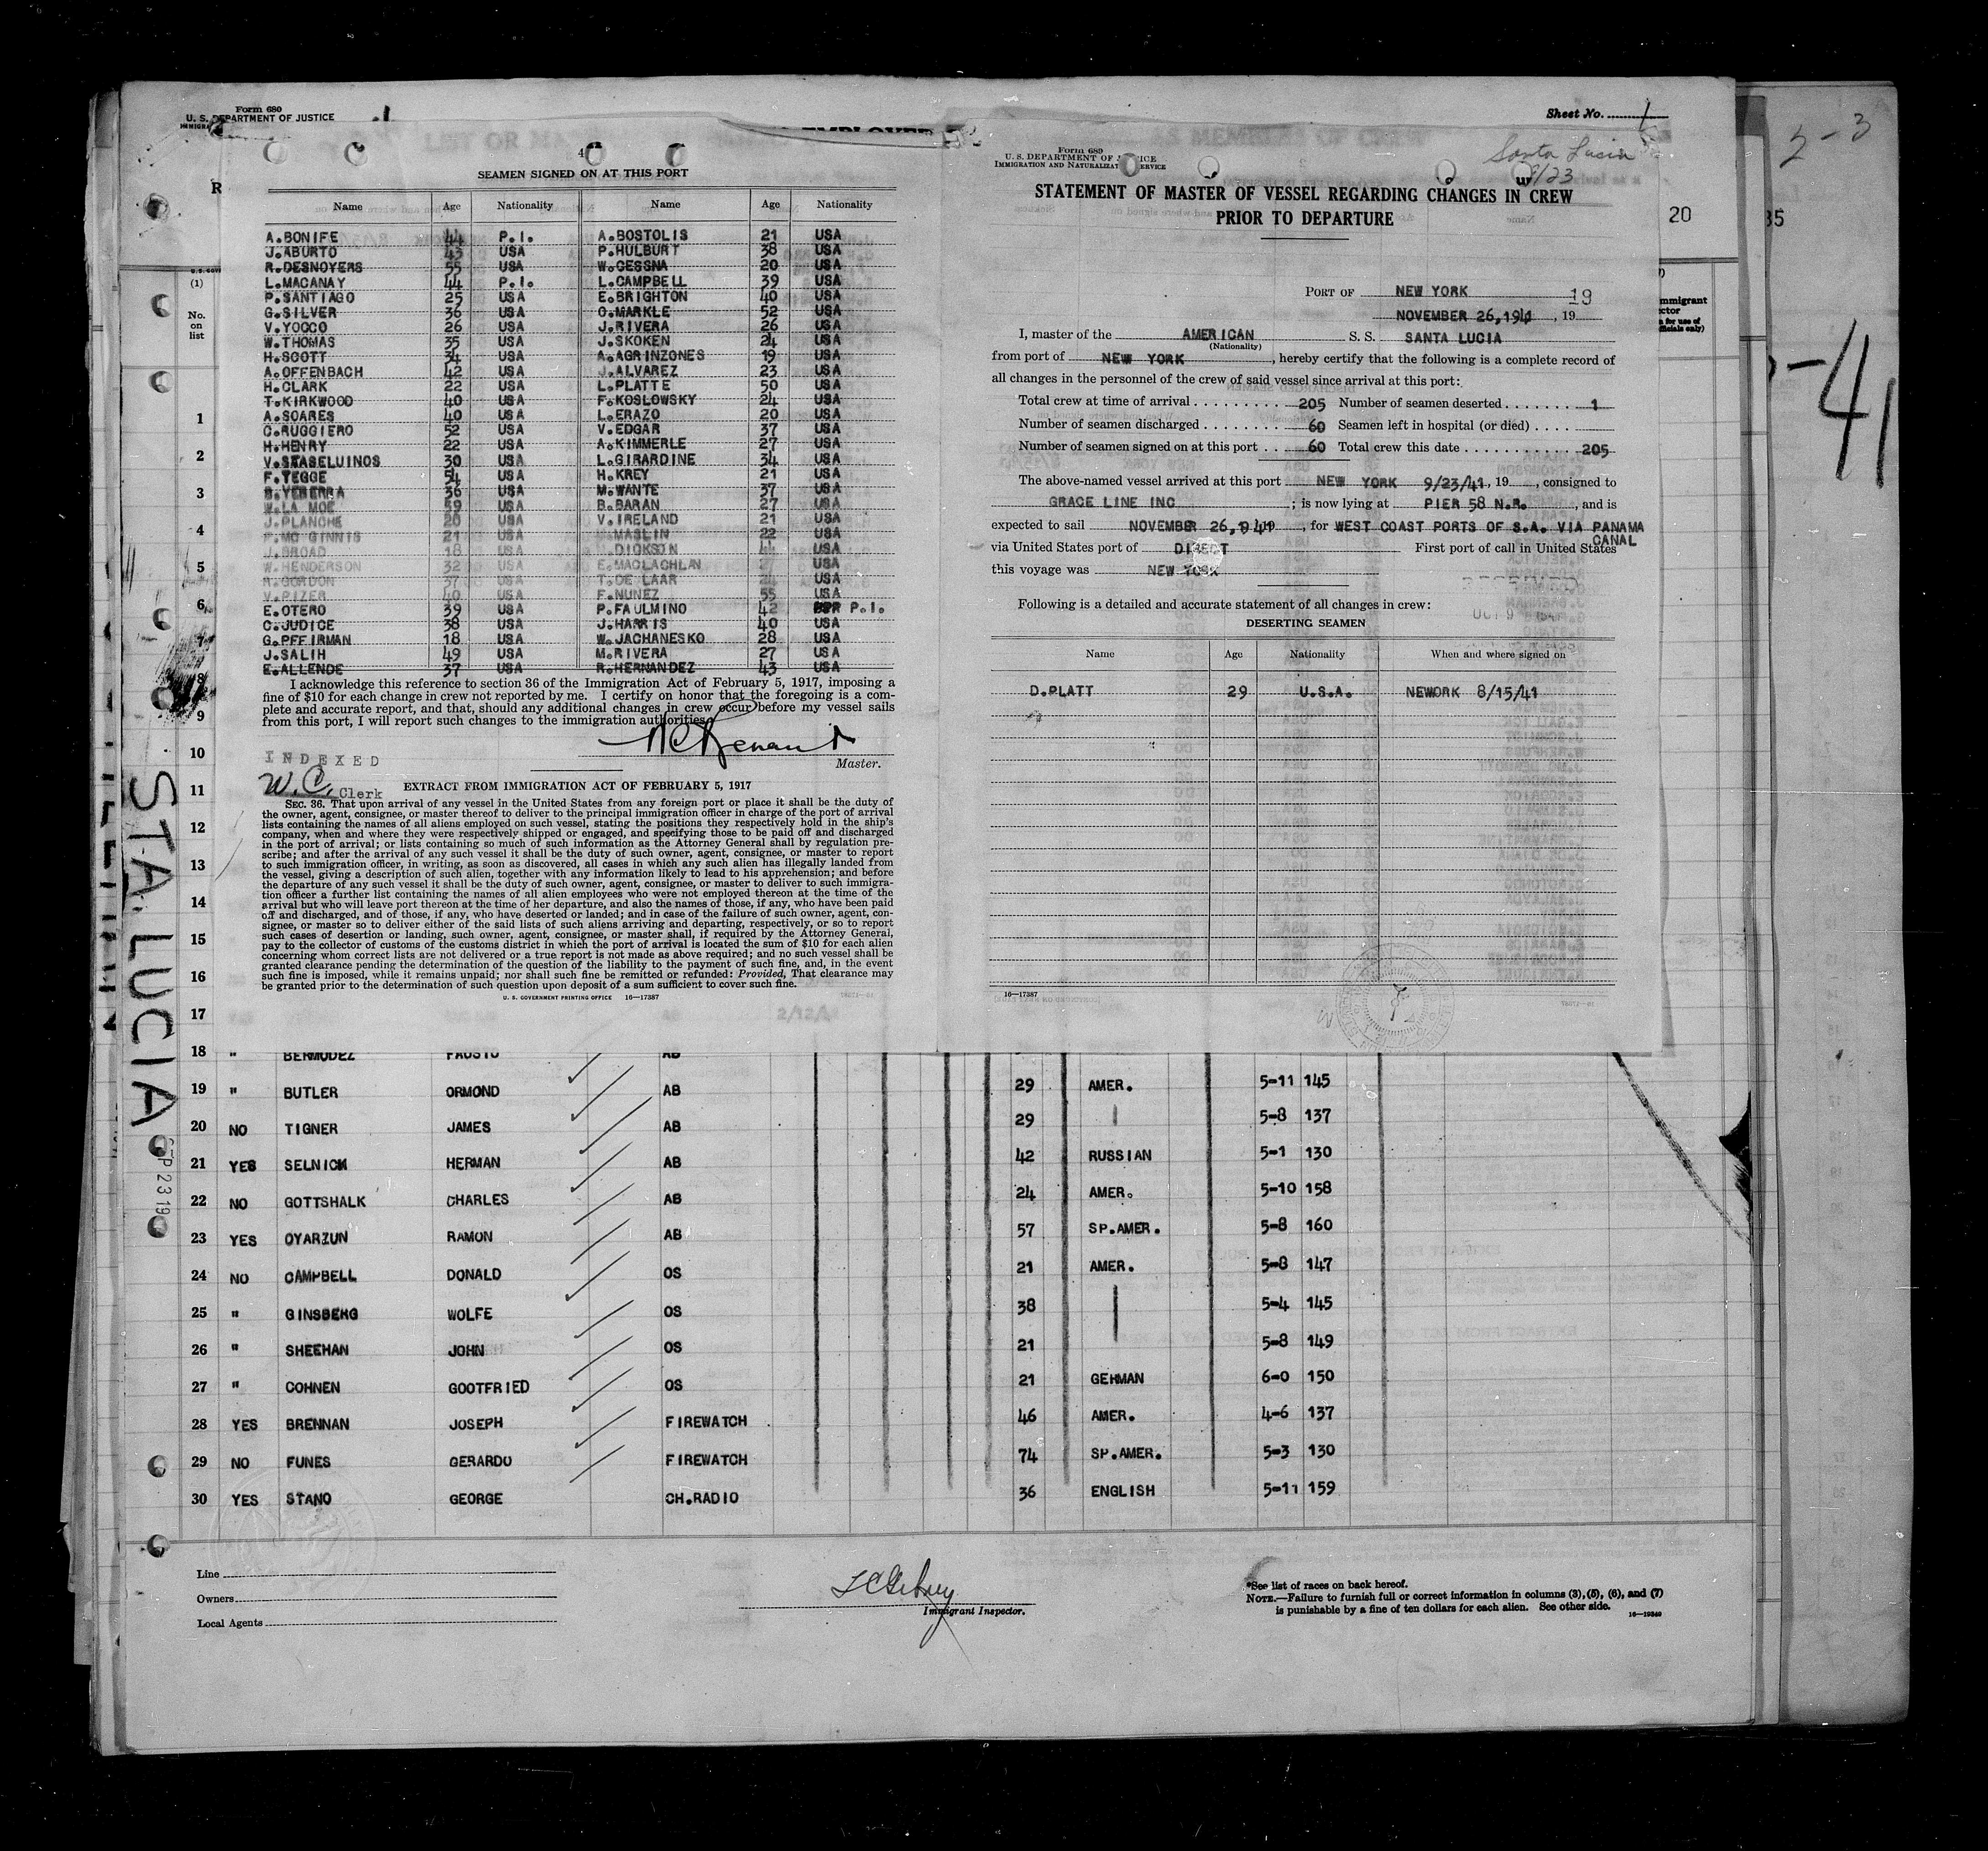 Form 680
U. S. DEPARTMENT OF JUSTICE
Sheet No.
4
SEAMEN SIGNED ON AT THIS PORT
Name Age Nationality Name Age Nationality
A.BONIFE 44 P.I. A.BOSTOLIS 21 USA
J.ABURTO 43 USA P.HULBURT 38 USA
R.DESNOYERS 55 USA W.CESSNA 20 USA
L.MACANAY 44 P.I. L.CAMPBELL 39 USA
P.SANTIAGO 25 USA E.BRIGHTON 40 USA
G.SILVER 36 USA O.MARKLE 52 USA
V.YOCCO 26 USA J.RIVERA 26 USA
W.THOMAS 35 USA J.SKOKEN 24 USA
H.SCOTT 34 USA A.AGRINZONES 19 USA
A.OFFENBACH 42 USA J.ALVAREZ 23 USA
H.CLARK 22 USA L.PLATTE 50 USA
T.KIRKWOOD 40 USA F.KOSLOWSKY 24 USA
A.SOARES 40 USA L.ERAZO 20 USA
C.RUGGIERO 52 USA V.EDGAR 37 USA
H.HENRY 22 USA A.KIMMERLE 27 USA
V.STASELUINOS 30 USA L.GIRARDINE 34 USA
F.TEGGE 54 USA H.KREY 21 USA
YBERRA 36 USA M.WANTE 37 USA
W.LA MOE 59 USA B.BARAN 27 USA
J.PLANCHE 20 USA V.IRELAND 21 USA
MC GINNIS 21 USA MASLIN 22 USA
J.BROAD 18 USA DICKSON 44 USA
W.HENDERSON 32 USA E.MACLACHLAN USA
GORDON 37 USA T.DE LAAR USA
V.PIZER 40 USA F.NUNEZ 55 USA
E.OTERO 39 USA P.FAULMINO 42 P.I.
C.JUDICE 38 USA J.HARRIS 40 USA
G.PFEIRMAN 18 USA W.JACHANESKO 28 USA
J.SALIH 49 USA M.RIVERA 27 USA
E.ALLENDE 37 USA R.HERNANDEZ 43 USA
I acknowledge this reference to section 36 of the Immigration Act of February 5, 1917, imposing a
fine of $10 for each change in crew not reported by me. I certify on honor that the foregoing is a com-
plete and accurate report, and that, should any additional changes in crew occur before my vessel sails
from this port, I will report such changes to the immigration authorities.
Master.
INDEXED
W.C. Clerk
EXTRACT FROM IMMIGRATION ACT OF FEBRUARY 5, 1917
SEC. 36. That upon arrival of any vessel in the United States from any foreign port or place it shall be the duty of
the owner, agent, consignee, or master thereof to deliver to the principal immigration officer in charge of the port of arrival
lists containing the names of all aliens employed on such vessel, stating the positions they respectively hold in the ship's
company, when and where they were respectively shipped or engaged, and specifying those to be paid off and discharged
in the port of arrival; or lists containing so much of such information as the Attorney General shall by regulation pre-
scribe; and after the arrival of any such vessel it shall be the duty of such owner, agent, consignee, or master to report
to such immigration officer, in writing, as soon as discovered, all cases in which any such alien has illegally landed from
the vessel, giving a description of such alien, together with any information likely to lead to his apprehension; and before
the departure of any such vessel it shall be the duty of such owner, agent, consignee, or master to deliver to such immigra-
tion officer a further list containing the names of all alien employees who were not employed thereon at the time of the
arrival but who will leave port thereon at the time of her departure, and also the names of those, if any, who have been paid
off and discharged, and of those, if any, who have deserted or landed; and in case of the failure of such owner, agent, con-
signee, or master so to deliver either of the said lists of such aliens arriving and departing, respectively, or so to report
such cases of desertion or landing, such owner, agent, consignee, or master shall, if required by the Attorney General,
pay to the collector of customs of the customs district in which the port of arrival is located the sum of $10 for each alien
concerning whom correct lists are not delivered or a true report is not made as above required; and no such vessel shall be
granted clearance pending the determination of the question of the liability to the payment of such fine, and, in the event
such fine is imposed, while it remains unpaid; nor shall such fine be remitted or refunded: Provided, That clearance may
be granted prior to the determination of such question upon deposit of a sum sufficient to cover such fine.
U. S. GOVERNMENT PRINTING OFFICE 16—17387
Form 680
U. S. DEPARTMENT OF JUSTICE
IMMIGRATION AND NATURALIZATION SERVICE
Santa Lucia
9/23
STATEMENT OF MASTER OF VESSEL REGARDING CHANGES IN CREW
PRIOR TO DEPARTURE
PORT OF NEW YORK 19
NOVEMBER 26,1941, 19
I, master of the AMERICAN S. S. SANTA LUCIA
(Nationality)
from port of NEW YORK, hereby certify that the following is a complete record of
all changes in the personnel of the crew of said vessel since arrival at this port:
Total crew at time of arrival 205 Number of seamen deserted 1
Number of seamen discharged 60 Seamen left in hospital (or died)
Number of seamen signed on at this port 60 Total crew this date 205
The above-named vessel arrived at this port NEW YORK 9/23/41, 19, consigned to
GRACE LINE INC; is now lying at PIER 58 N.R., and is
expected to sail NOVEMBER 26, 41, for WEST COAST PORTS OF S.A. VIA PANAMA
CANAL
via United States port of DIRECT First port of call in United States
this voyage was NEW YORK
Following is a detailed and accurate statement of all changes in crew:
DESERTING SEAMEN
Name Age Nationality When and where signed on
D.PLATT 29 U.S.A. NEWORK 8/15/41
16—17387
20
35
2-3
-41
(1)
No.
on
list
1
2
3
4
5
6
7
8
9
10
11
12
13
14
15
16
17
STA. LUCIA
SEP 23 19
18 " BERMUDEZ FAUSTO AB
19 " BUTLER ORMOND AB 29 AMER. 5-11 145
20 NO TIGNER JAMES AB 29 5-8 137
21 YES SELNICK HERMAN AB 42 RUSSIAN 5-1 130
22 NO GOTTSHALK CHARLES AB 24 AMER. 5-10 158
23 YES OYARZUN RAMON AB 57 SP.AMER. 5-8 160
24 NO CAMPBELL DONALD OS 21 AMER. 5-8 147
25 " GINSBERG WOLFE OS 38 5-4 145
26 " SHEEHAN JOHN OS 21 5-8 149
27 " COHNEN GOOTFRIED OS 21 GERMAN 6-0 150
28 YES BRENNAN JOSEPH FIREWATCH 46 AMER. 4-6 137
29 NO FUNES GERARDO FIREWATCH 74 SP.AMER. 5-3 130
30 YES STANO GEORGE CH.RADIO 36 ENGLISH 5-11 159
Line
Owners
Local Agents
Immigrant Inspector.
*See list of races on back hereof.
NOTE.—Failure to furnish full or correct information in columns (3), (5), (6), and (7)
is punishable by a fine of ten dollars for each alien. See other side.
16—19349